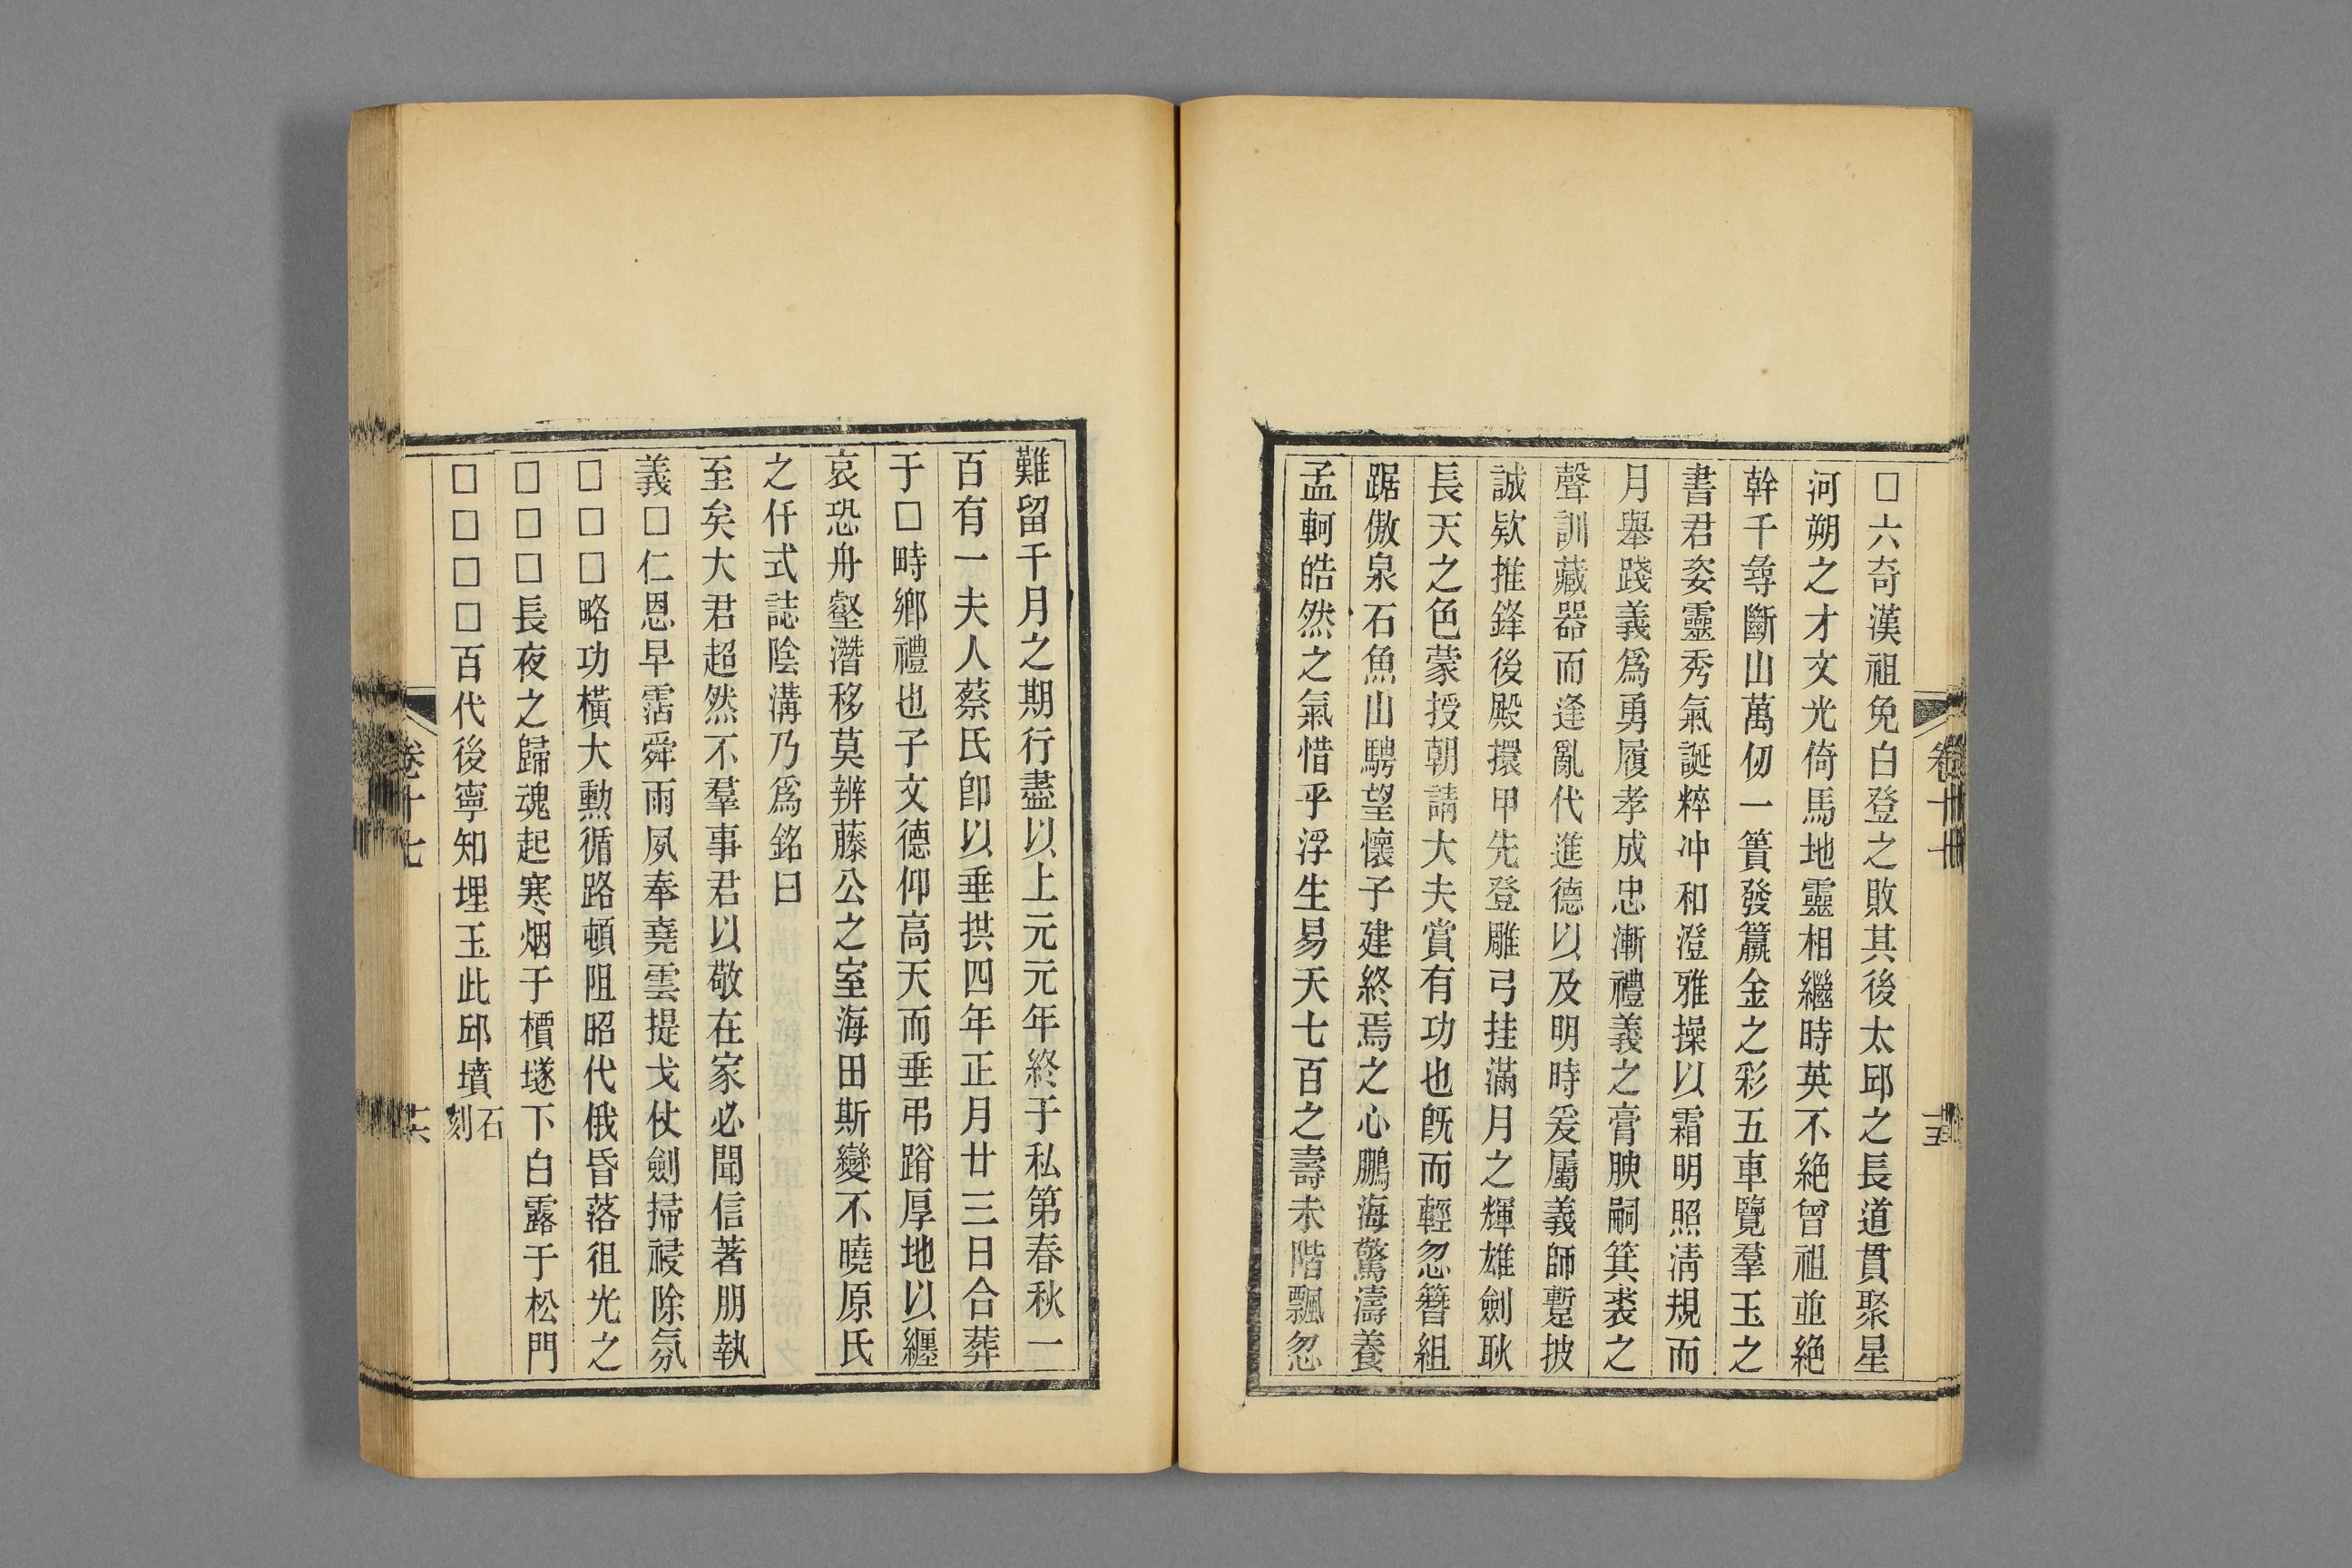 □六奇漢祖免白登之敗其後太邱之長道貫聚星
河朔之才文光倚馬地靈相繼時英不絶曾祖並絶
幹千尋斷山萬仞一簣發籯金之彩五車覽羣玉之
書君姿靈秀氣誕粹冲和澄雅操以霜明照淸規而
月舉踐義爲勇履孝成忠漸禮義之膏腴嗣箕裘之
聲訓藏器而逢亂代進德以及明時爰屬義師蹔披
誠欵推鋒後殿擐甲先登雕弓挂滿月之輝雄劍耿
長天之色蒙授朝請大夫賞有功也旣而輕忽簪組
踞傲泉石魚山騁望懷子建終焉之心鵬海驚濤養
孟軻皓然之氣惜乎浮生易天七百之壽未階飄忽
卷十七
十五
難留千月之期行盡以上元元年終于私第春秋一
百有一夫人蔡氏卽以垂拱四年正月廿三日合葬
于□畤鄉禮也子文德仰高天而垂弔蹐厚地以纏
哀恐舟壑潛移莫辨藤公之室海田斯變不曉原氏
之仟式誌陰溝乃爲銘曰
至矣大君超然不羣事君以敬在家必聞信著朋執
義□仁恩早霑舜雨夙奉堯雲提戈仗劍掃祲除氛
□□□略功橫大勲循路頓阻昭代俄昏落徂光之
□□□長夜之歸魂起寒烟于檟墜下白露于松門
□□□□百代後寧知埋玉此邱墳石刻
卷十七
十六